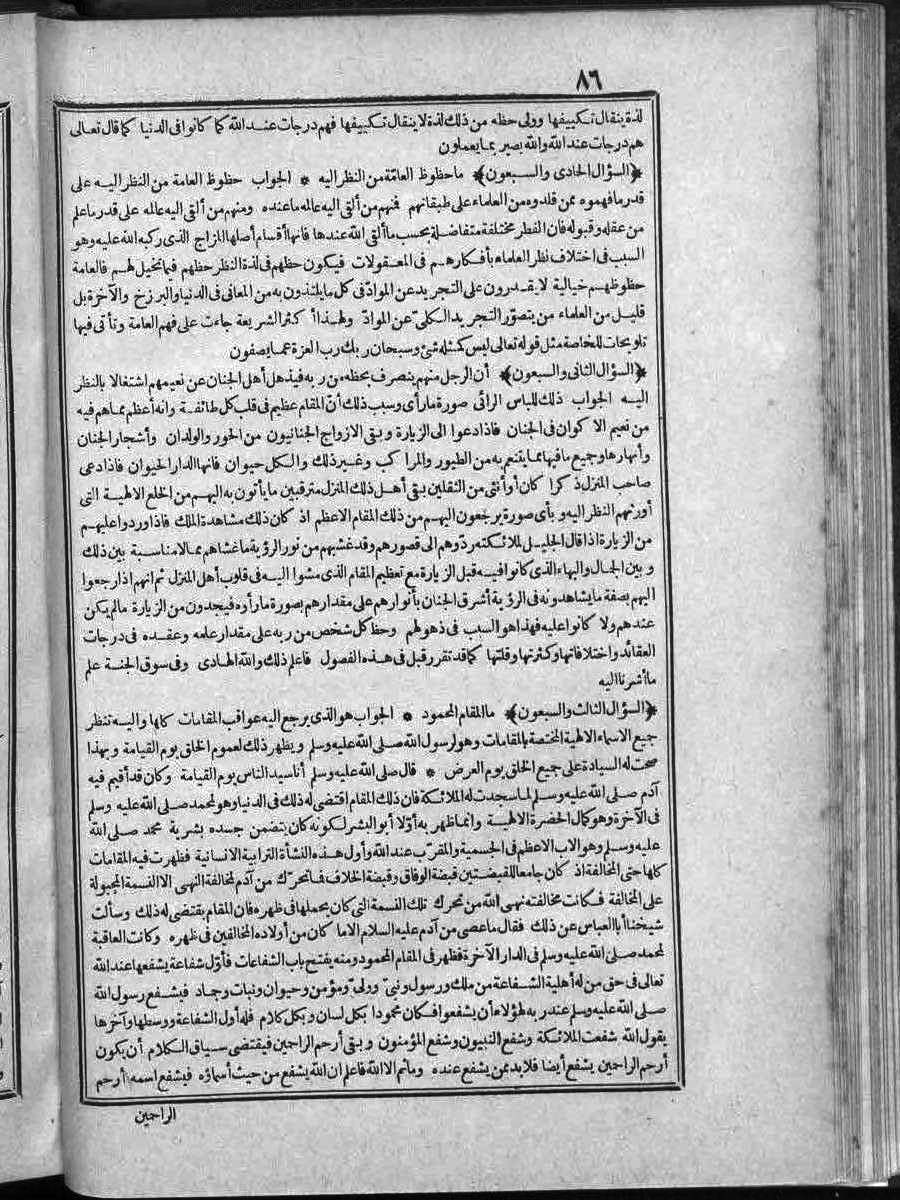 ٨٦
لذة ينقال تكييفها وولى حظه من ذلك لذة لا ينقال تكييفها فهم درجات عند الله كما كانوا فى الدنيا كما قال تعالى
هم درجات عند الله والله بصير بما يعملون
﴿السؤال الحادى والسبعون﴾ ما حظوظ العامّة من النظر اليه * الجواب حظوظ العامة من النظر اليه على
قدر ما فهموه ممن قلدوه من العلماء على طبقاتهم فمنهم من ألقى اليه عالمه ما عنده ومنهم من ألقى اليه عالمه على قدر ما علم
من عقله وقبوله فان الفطر مختلفة متفاضلة بحسب ما ألقى الله عندها فانها أقسام أصلها المزاج الذى ركبه الله عليه وهو
السبب فى اختلاف نظر العلماء بأفكارهم فى المعقولات فيكون حظهم فى لذة النظر حظهم فيما تخيل لهم فالعامة
حظوظهم خيالية لا يقدرون على التجريد عن الموادّ فى كل ما يلتذون به من المعانى فى الدنيا والبرزخ والآخرة بل
قليل من العلماء من يتصوّر التجريد الكلىّ عن الموادّ ولهذا أكثر الشريعة جاءت على فهم العامة وتأتى فيها
تلويحات للخاصة مثل قوله تعالى ليس كمثله شئ وسبحان ربك رب العزة عما يصفون
﴿السؤال الثانى والسبعون﴾ أن الرجل منهم ينصرف بحظه من ربه فيذهل أهل الجنان عن نعيمهم اشتغالا بالنظر
اليه الجواب ذلك للباس الرائى صورة ما رأى وسبب ذلك أنّ المقام عظيم فى قلب كل طائفة وانه أعظم مما هم فيه
من نعيم الاكوان فى الجنان فاذا دعوا الى الزيارة وبقى الازواج الجنانيون من الحور والولدان وأشجار الجنان
وأنهارها وجميع ما فيها مما يتنعم به من الطيور والمراكب وغير ذلك والكل حيوان فانها الدار الحيوان فاذا دعى
صاحب المنزل ذكرا كان أو أنثى من الثقلين بقى أهل ذلك المنزل مترقبين ما يأتون به اليهم من الخلع الالهية التى
أورثهم النظر اليه و بأى صورة يرجعون اليهم من ذلك المقام الاعظم اذ كان ذلك مشاهدة الملك فاذا وردوا عليهم
من الزيارة اذا قال الجليل لملائكته ردّوهم الى قصورهم وقد غشيهم من نور الرؤية ما غشاهم مما لا مناسبة بين ذلك
وبين الجمال والبهاء الذى كانوا فيه قبل الزيارة مع تعظيم المقام الذى مشوا اليه فى قلوب أهل المنزل ثم انهم اذا رجعوا
اليهم بصفة ما يشاهدونه فى الرؤية أشرق الجنان بأنوارهم على مقدارهم بصورة ما رأوه فيجدون من الزيارة مالم يكن
عندهم ولا كانوا عليه فهذا هو السبب فى ذهولهم وحظ كل شخص من ربه على مقدار علمه وعقده فى درجات
العقائد واختلافاتها وكثرتها وقلتها كما قد تقرر قبل فى هذه الفصول فاعلم ذلك والله الهادى وفى سوق الجنة علم
ما أشرنا اليه
﴿السؤال الثالث والسبعون﴾ ما المقام المحمود * الجواب هو الذى يرجع اليه عواقب المقامات كلها واليه تنظر
جميع الاسماء الالهية المختصة بالمقامات وهو لرسول الله صلى الله عليه وسلم ويظهر ذلك لعموم الخلق يوم القيامة وبهذا
صحت له السيادة على جميع الخلق يوم العرض * قال صلى الله عليه وسلم أنا سيد الناس يوم القيامة وكان قد أقيم فيه
آدم صلى الله عليه وسلم لما سجدت له الملائكة فان ذلك المقام اقتضى له ذلك فى الدنيا وهو لمحمد صلى الله عليه وسلم
فى الآخرة وهو كمال الحضرة الالهية وانما ظهر به أوّلا أبو البشر لكونه كان يتضمن جسده بشرية محمد صلى الله
عليه وسلم وهو الاب الاعظم فى الجسمية والمقرّب عند الله وأول هذه النشأة الترابية الانسانية فظهرت فيه المقامات
كلها حتى المخالفة اذ كان جامعا للقبضتين قبضة الوفاق وقبضة الخلاف فما تحرّك من آدم لمخالفة النهى الا النسمة المجبولة
على المخالفة فكانت مخالفته نهى الله من تحرك تلك النسمة التى كان يحملها فى ظهره فان المقام يقتضى له ذلك وسألت
شيخنا أبا العباس عن ذلك فقال ما عصى من آدم عليه السلام الا ما كان من أولاده المخالفين فى ظهره وكانت العاقبة
لمحمد صلى الله عليه وسلم فى الدار الآخرة فظهر فى المقام المحمود ومنه يفتح باب الشفاعات فأوّل شفاعة يشفعها عند الله
تعالى فى حق من له أهلية الشفاعة من ملك ورسول ونبىّ وولىّ ومؤمن وحيوان ونبات وجماد فيشفع رسول الله
صلى الله عليه وسلم عند ربه لهؤلاء أن يشفعوا فكان محمودا بكل لسان وبكل كلام فله أول الشفاعة ووسطها وآخرها
يقول الله شفعت الملائكة وشفع النبيون وشفع المؤمنون وبقى أرحم الراحمين فيقتضى سياق الكلام أن يكون
أرحم الراحمين يشفع أيضا فلا بد ممن يشفع عنده وماثم الا الله فاعلم ان الله يشفع من حيث أسماؤه فيشفع اسمه أرحم
الراحمين